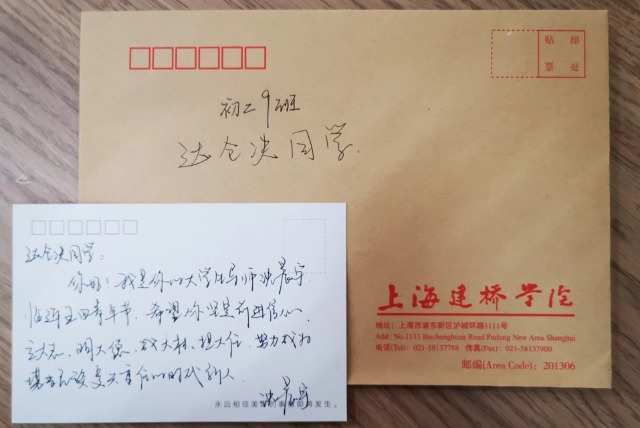 贴 邮
票 处
初二9班
达仓决同学
上海建桥学院
地址：上海市浦东新区沪城环路1111号
Add: No.1111 Huchenghuan Road Pudong New Area Shanghai
电话(Tel)：021-58137788 传真(Fax)：021-58137900
邮编(Area Code)：201306
达仓决同学：
你好！我是你的大学生导师沈晨宇
临近五四青年节，希望你坚定前进信心，
立大志、明大德、成大才、担大任，努力成为
堪当民族复兴重任的时代新人
沈晨宇
永远相信美好的事情即将发生。